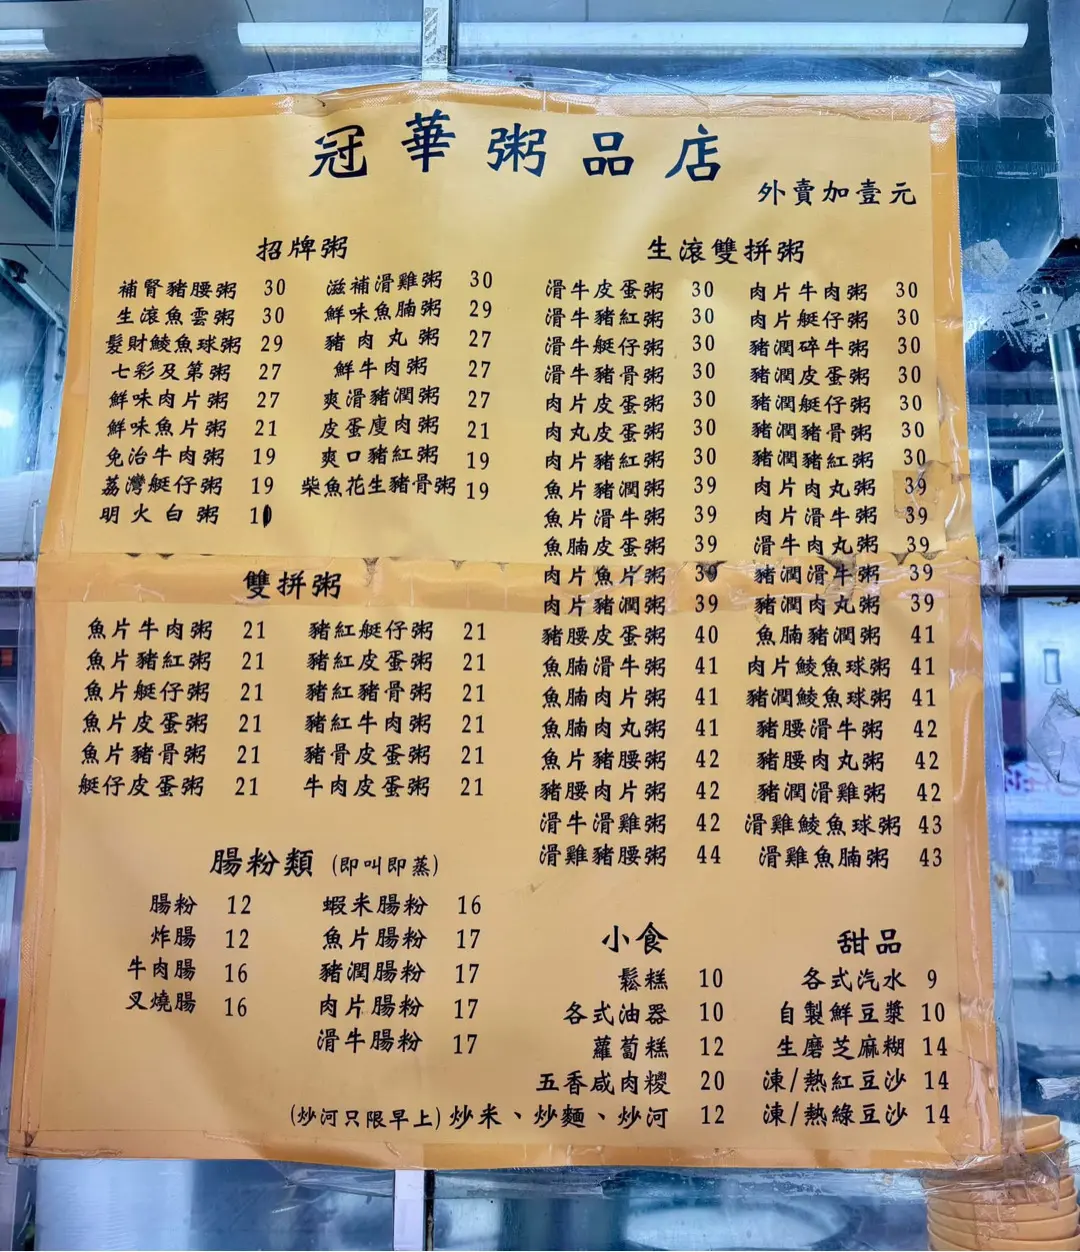 冠華粥品店
外賣加壹元
招牌粥
補腎豬腰粥 30
生滾魚雲粥 30
髮財鯪魚球粥 29
七彩及第粥 27
鮮味肉片粥 27
鮮味魚片粥 21
免治牛肉粥 19
荔灣艇仔粥 19
明火白粥 10
滋補滑雞粥 30
鮮味魚腩粥 29
豬肉丸粥 27
鮮牛肉粥 27
爽滑豬潤粥 27
皮蛋廋肉粥 21
爽口豬紅粥 19
柴魚花生豬骨粥 19
雙拼粥
魚片牛肉粥 21
魚片豬紅粥 21
魚片艇仔粥 21
魚片皮蛋粥 21
魚片豬骨粥 21
艇仔皮蛋粥 21
豬紅艇仔粥 21
豬紅皮蛋粥 21
豬紅豬骨粥 21
豬紅牛肉粥 21
豬骨皮蛋粥 21
牛肉皮蛋粥 21
腸粉類 (即叫即蒸)
腸粉 12
炸腸 12
牛肉腸 16
叉燒腸 16
蝦米腸粉 16
魚片腸粉 17
豬潤腸粉 17
肉片腸粉 17
滑牛腸粉 17
生滾雙拼粥
滑牛皮蛋粥 30
滑牛豬紅粥 30
滑牛艇仔粥 30
滑牛豬骨粥 30
肉片皮蛋粥 30
肉丸皮蛋粥 30
肉片豬紅粥 30
魚片豬潤粥 39
魚片滑牛粥 39
魚腩皮蛋粥 39
肉片魚片粥 39
肉片豬潤粥 39
豬腰皮蛋粥 40
魚腩滑牛粥 41
魚腩肉片粥 41
魚腩肉丸粥 41
魚片豬腰粥 42
豬腰肉片粥 42
滑牛滑雞粥 42
滑雞豬腰粥 44
肉片牛肉粥 30
肉片艇仔粥 30
豬潤碎牛粥 30
豬潤皮蛋粥 30
豬潤艇仔粥 30
豬潤豬骨粥 30
豬潤豬紅粥 30
肉片肉丸粥 39
肉片滑牛粥 39
滑牛肉丸粥 39
豬潤滑牛粥 39
豬潤肉丸粥 39
魚腩豬潤粥 41
肉片鯪魚球粥 41
豬潤鯪魚球粥 41
豬腰滑牛粥 42
豬腰肉丸粥 42
豬潤滑雞粥 42
滑雞鯪魚球粥 43
滑雞魚腩粥 43
小食
鬆糕 10
各式油器 10
蘿蔔糕 12
五香咸肉糭 20
(炒河只限早上) 炒米、炒麵、炒河 12
甜品
各式汽水 9
自製鮮豆漿 10
生磨芝麻糊 14
凍/熱紅豆沙 14
凍/熱綠豆沙 14